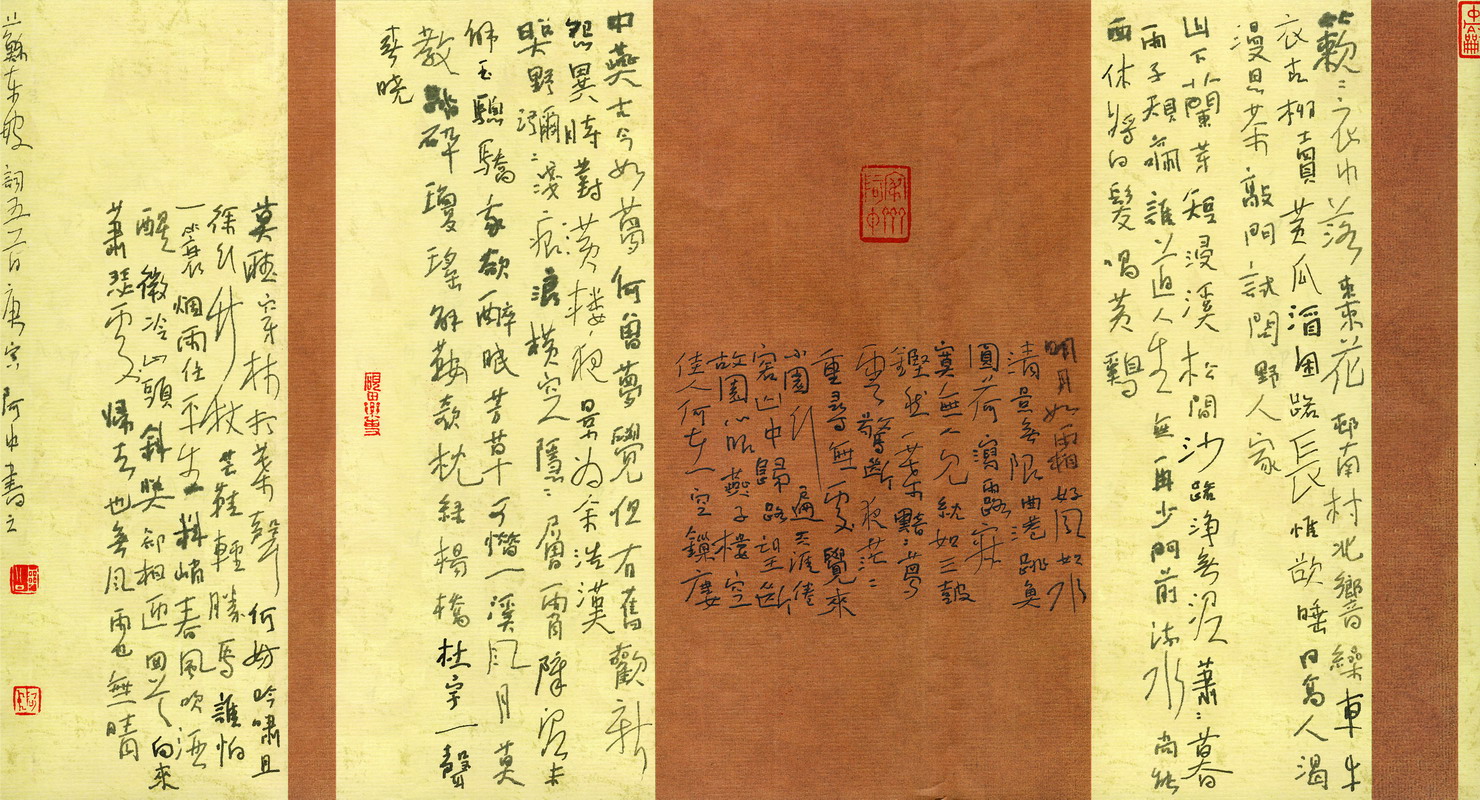 簌〻衣巾落棗花邨南村北響繰車牛
衣古柳賣黄瓜酒困路長惟欲睡日高人渴
漫思茶敲門試問野人家
山下蘭芽短浸溪松間沙路淨無泥蕭〻暮
雨子規啼誰道人生無再少門前流水尚能
西休將白髮唱黄鷄
明月如霜好風如水
清景無限曲港跳魚
圓荷瀉露寂
寞無人見紞如三鼓
鏗然一葉黯〻夢
雲驚斷夜茫〻
重尋無處覺來
小園行遍天涯倦
客山中歸路望斷
故園心眼燕子樓空
佳人何在空鎖樓
中燕古今如夢何曾夢覺但有舊歡新
怨異時對黄樓夜景為余浩漢
照野瀰〻淺痕浪橫空隱〻層霄障泥未
解玉驄驕我欲醉眠芳草可惜一溪風月莫
教踏碎瓊瑤解鞍欹枕綠楊橋杜宇一聲
春曉
莫聽穿林打葉聲何妨吟嘯且
徐行竹杖芒鞋輕勝馬誰怕
一蓑烟雨任平生料峭春風吹酒
醒微冷山頭斜照却相迎回首向來
蕭瑟處歸去也無風雨也無晴
蘇東坡詞五首庚寅阿中書之